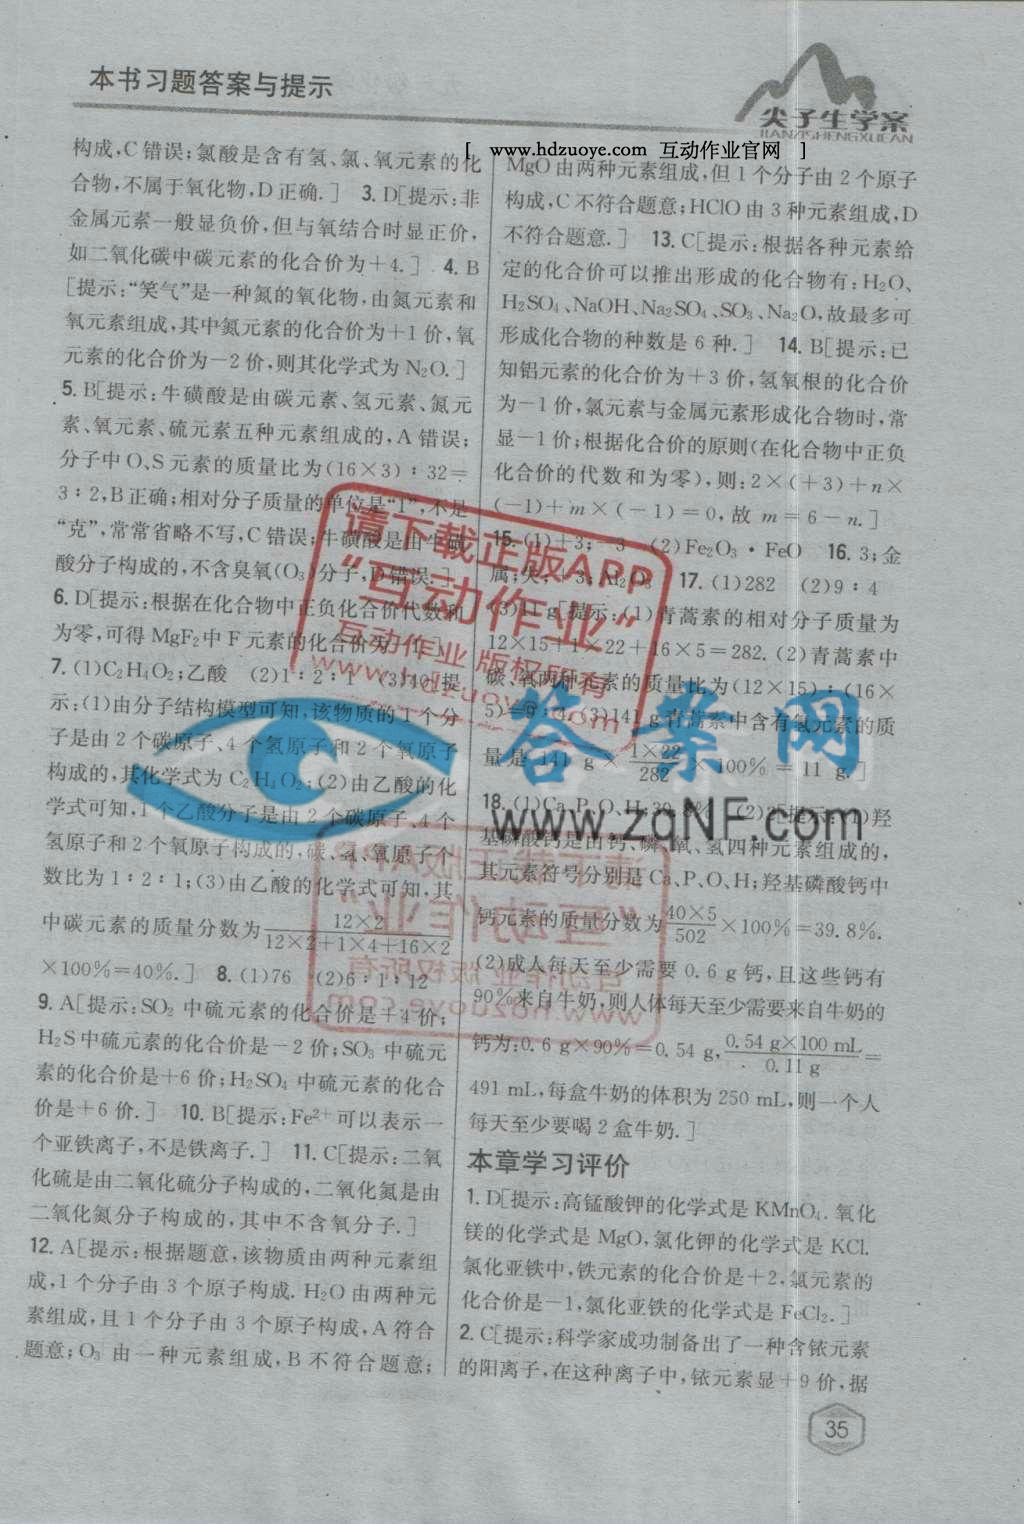 本书习题答案与提示
尖子生学案
JIANZISHENGXUEAN
[ www.hdzuoye.com 互动作业官网 ]
构成,C错误;氯酸是含有氢、氯、氧元素的化
合物,不属于氧化物,D正确.] 3. D[提示:非
金属元素一般显负价,但与氧结合时显正价,
如二氧化碳中碳元素的化合价为+4.] 4. B
[提示:“笑气”是一种氮的氧化物,由氮元素和
氧元素组成,其中氮元素的化合价为+1价,氧
元素的化合价为-2价,则其化学式为N₂O.]
5. B[提示:牛磺酸是由碳元素、氢元素、氮元
素、氧元素、硫元素五种元素组成的,A错误;
分子中O、S元素的质量比为(16×3):32=
3:2,B正确;相对分子质量的单位是“1”,不是
“克”,常常省略不写,C错误;牛磺酸是由牛磺
酸分子构成的,不含臭氧(O₃)分子,D错误.]
6. D[提示:根据在化合物中正负化合价代数和
为零,可得MgF₂中F元素的化合价为-1.]
7. (1)C₂H₄O₂;乙酸 (2)1:2:1 (3)40[提
示:(1)由分子结构模型可知,该物质的1个分
子是由2个碳原子、4个氢原子和2个氧原子
构成的,其化学式为C₂H₄O₂;(2)由乙酸的化
学式可知,1个乙酸分子是由2个碳原子、4个
氢原子和2个氧原子构成的,碳、氢、氧原子个
数比为1:2:1;(3)由乙酸的化学式可知,其
中碳元素的质量分数为 12×2/(12×2+1×4+16×2)
×100%=40%.] 8. (1)76 (2)6:1:12
9. A[提示:SO₂中硫元素的化合价是+4价;
H₂S中硫元素的化合价是-2价;SO₃中硫元
素的化合价是+6价;H₂SO₄中硫元素的化合
价是+6价.] 10. B[提示:Fe²⁺可以表示一
个亚铁离子,不是铁离子.] 11. C[提示:二氧
化硫是由二氧化硫分子构成的,二氧化氮是由
二氧化氮分子构成的,其中不含氧分子.]
12. A[提示:根据题意,该物质由两种元素组
成,1个分子由3个原子构成.H₂O由两种元
素组成,且1个分子由3个原子构成,A符合
题意;O₃由一种元素组成,B不符合题意;
MgO由两种元素组成,但1个分子由2个原子
构成,C不符合题意;HClO由3种元素组成,D
不符合题意.] 13. C[提示:根据各种元素给
定的化合价可以推出形成的化合物有:H₂O、
H₂SO₄、NaOH、Na₂SO₄、SO₃、Na₂O,故最多可
形成化合物的种数是6种.] 14. B[提示:已
知铝元素的化合价为+3价,氢氧根的化合价
为-1价,氯元素与金属元素形成化合物时,常
显-1价;根据化合价的原则(在化合物中正负
化合价的代数和为零),则:2×(+3)+n×
(-1)+m×(-1)=0,故m=6-n.]
15. (1)+3;-3 (2)Fe₂O₃·FeO 16. 3;金
属;失;+3;Al₂O₃ 17. (1)282 (2)9:4
(3)11 g[提示:(1)青蒿素的相对分子质量为
12×15+1×22+16×5=282.(2)青蒿素中
碳、氧两种元素的质量比为(12×15):(16×
5)=9:4.(3)141 g青蒿素中含有氢元素的质
量是 141 g×1×22/282×100%=11 g.]
18. (1)Ca、P、O、H;39.8% (2)2[提示:(1)羟
基磷酸钙是由钙、磷、氧、氢四种元素组成的,
其元素符号分别是Ca、P、O、H;羟基磷酸钙中
钙元素的质量分数为40×5/502×100%=39.8%.
(2)成人每天至少需要0.6 g钙,且这些钙有
90%来自牛奶,则人体每天至少需要来自牛奶的
钙为:0.6 g×90%=0.54 g,0.54 g×100 mL/0.11 g=
491 mL,每盒牛奶的体积为250 mL,则一个人
每天至少要喝2盒牛奶.]
本章学习评价
1. D[提示:高锰酸钾的化学式是KMnO₄.氧化
镁的化学式是MgO,氯化钾的化学式是KCl.
氯化亚铁中,铁元素的化合价是+2,氯元素的
化合价是-1,氯化亚铁的化学式是FeCl₂.]
2. C[提示:科学家成功制备出了一种含铱元素
的阳离子,在这种离子中,铱元素显+9价,据
35
请下载正版APP
“互动作业”
互动作业 版权所有
www.hdzuoye.com
答案网
www.zqNF.com
请下载正版APP
“互动作业”
互动作业 版权所有
www.hdzuoye.com